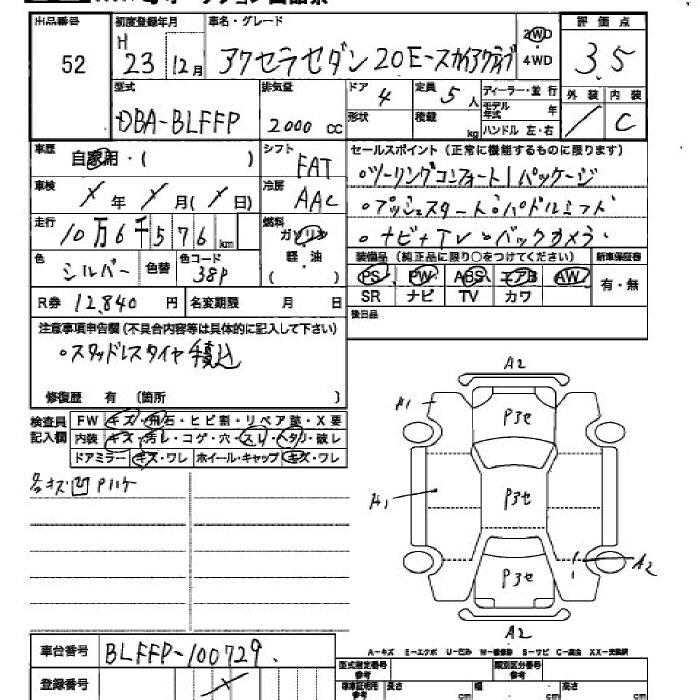 出品番号 初度登録年月 車名・グレード 2WD・4WD 評価点
52 H 23 12月 アクセラセダン 20E-スカイアクティブ 3.5
型式 排気量 ドア 定員 ディーラー・並行 外装 内装
DBA-BLFFP 2000 cc 4 5人 モデル年式 年
形状 積載 kg ハンドル 左・右 / C
車歴 自家用・( ) シフト FAT セールスポイント (正常に機能するものに限ります)
車検 X 年 X 月( X 日) 冷房 AAC 。ツーリングコンフォート1パッケージ
走行 10万6千576km 燃料 ガソリン 。プッシュスタート。パドルシフト
軽・油 。ナビ+TV 。バックカメラ
色 シルバー 色替 色コード 38P 装備品 (純正品に限り○をつけてください) 新車保証書
PS PW ABS エアB AW 有・無
R券 12,840 円 名変期限 月 日 SR ナビ TV カワ
注意事項申告欄(不具合内容等は具体的に記入して下さい) 後日品
。スタッドレスタイヤ積込
修復歴 有 (箇所 )
検査員記入欄 FW キズ・飛石・ヒビ割・リペア跡・X要
内装 キズ・汚レ・コゲ・穴・スレ・ヘタリ・破レ
ドアミラー キズ・ワレ ホイール・キャップ キズ・ワレ
各キズ凹 Pハケ
A2
A1 P3セ
A1 P3セ
P3セ A2
A2
車台番号 BLFFP-100729.
A-キズ E-エクボ U-凹み W-補修跡 S-サビ C-腐食 XX-交換済
型式指定番号 参考 類別区分番号 参考
登録番号 車庫証明用 参考 長さ cm 幅 cm 高さ cm